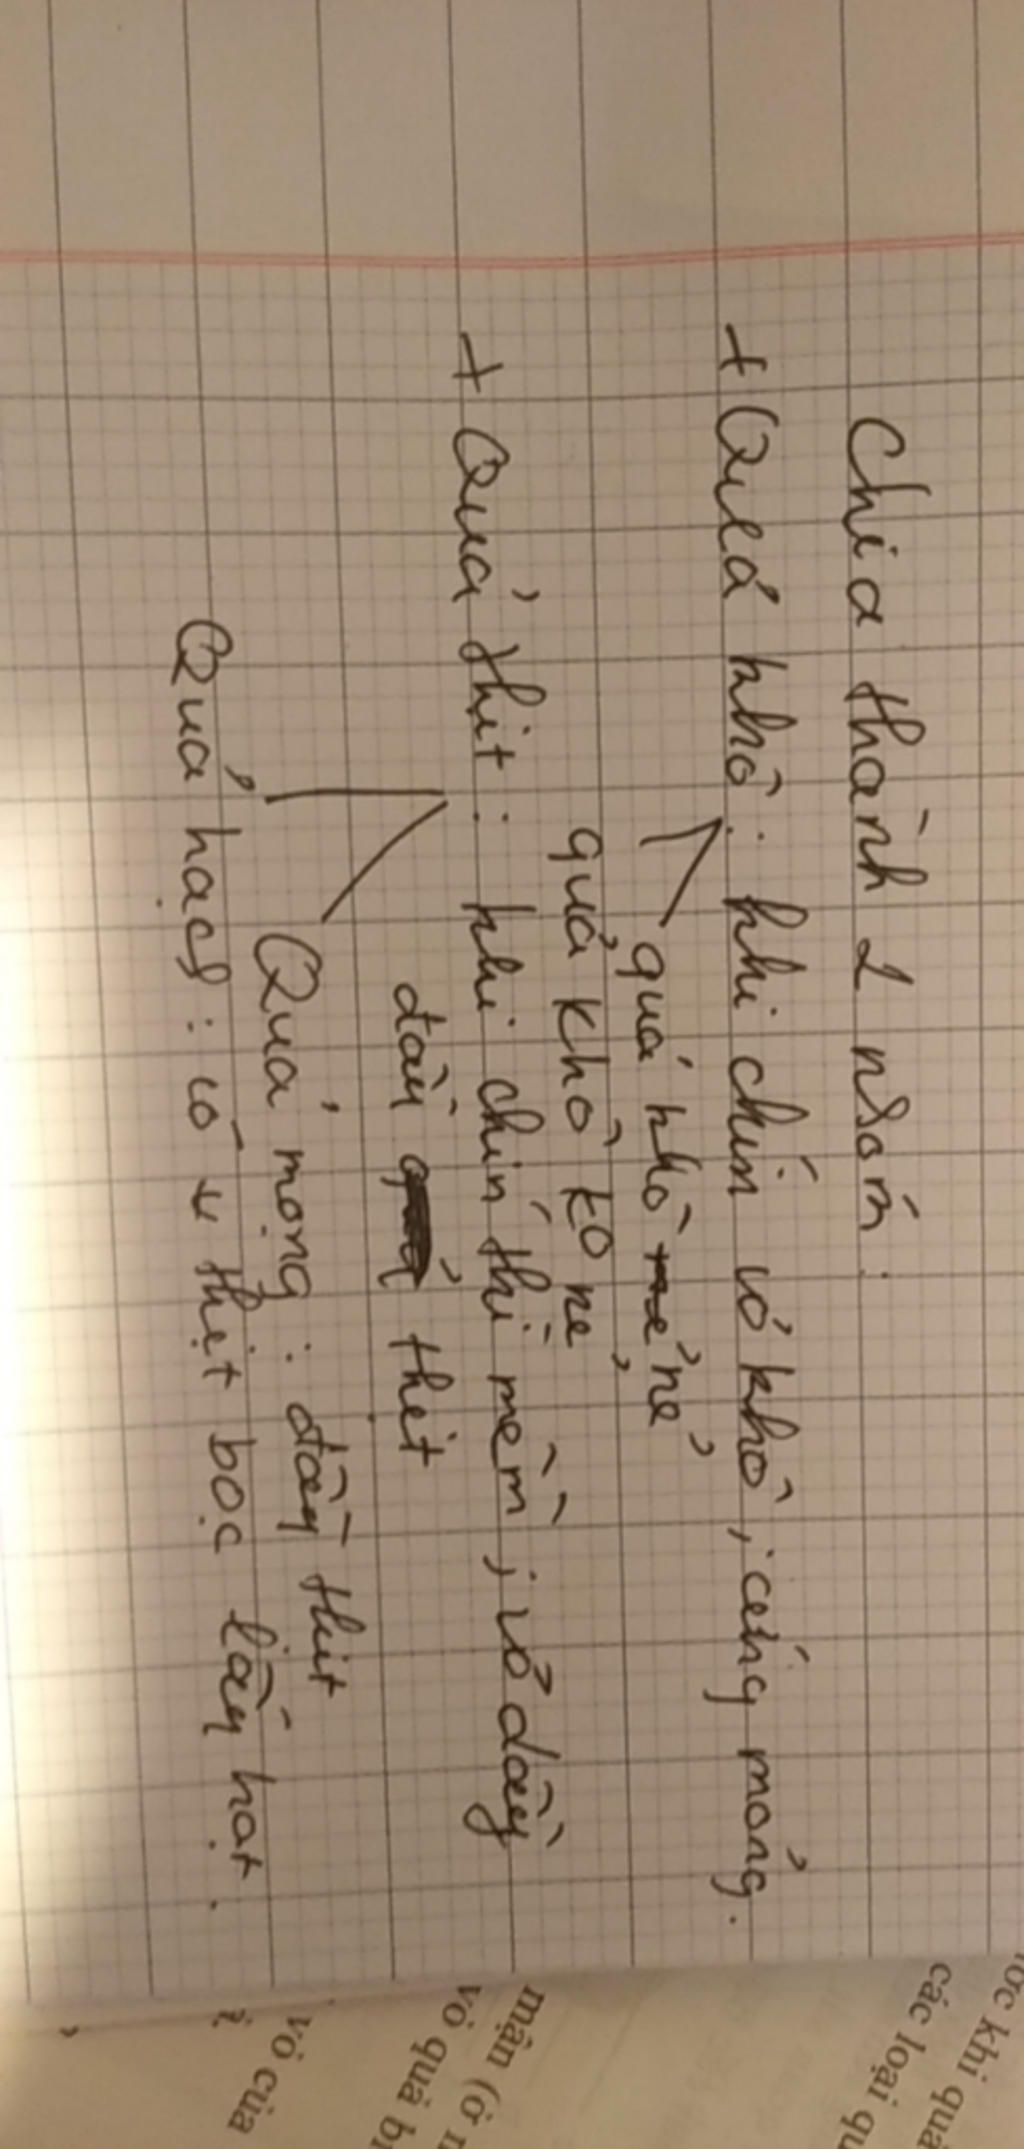 Chia thành 2 nhóm:
+ Quả khô: khi chín vỏ khô, cứng mỏng.
quả khô nẻ
quả khô ko nẻ
+ Quả thịt: khi chín thì mềm, vỏ dày
đầy thịt
Quả mọng: đầy thịt
Quả hạch: có thịt bọc lấy hạt.
ớc khi qua
các loại qu
mận (ở n
vỏ quả bị
vỏ của